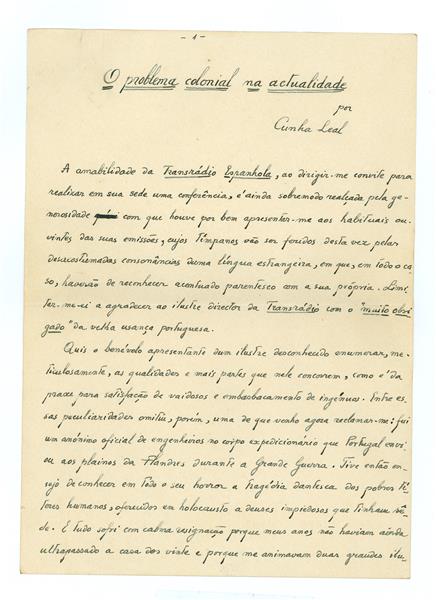 - 1 -
O problema colonial na actualidade
por
Cunha Leal
A amabilidade da Transrádio Espanhola, ao dirigir-me convite para
realizar em sua sede uma conferência, é ainda sobremodo realçada pela ge-
nerosidade com que houve por bem apresentar-me aos habituais ou-
vintes das suas emissões, cujos tímpanos vão ser feridos desta vez pelas
desacostumadas consonâncias duma língua estrangeira, em que, em todo o ca-
so, haverão de reconhecer acentuado parentesco com a sua própria. Limi-
tar-me-ei a agradecer ao ilustre director da Transrádio com o "muito obri-
gado" da velha usança portuguesa.
Quis o benévolo apresentante dum ilustre desconhecido enumerar, me-
ticulosamente, as qualidades e mais partes que nele concorrem, como é da
praxe para satisfação de vaidosos e embasbacamento de ingénuos. Entre es-
sas peculiaridades omitiu, porém, uma de que venho agora reclamar-me: fui
um anónimo oficial de engenheiros no corpo expedicionário que Portugal envi-
ou aos plainos da Flandres durante a Grande Guerra. Tive então en-
sejo de conhecer em todo o seu horror a tragédia dantesca dos pobres tí-
teres humanos, oferecidos em holocausto a deuses impiedosos que tinham sê-
de. E tudo sofri com calma resignação porque meus anos não haviam ainda
ultrapassado a casa dos vinte e porque me animavam duas grandes ilu-